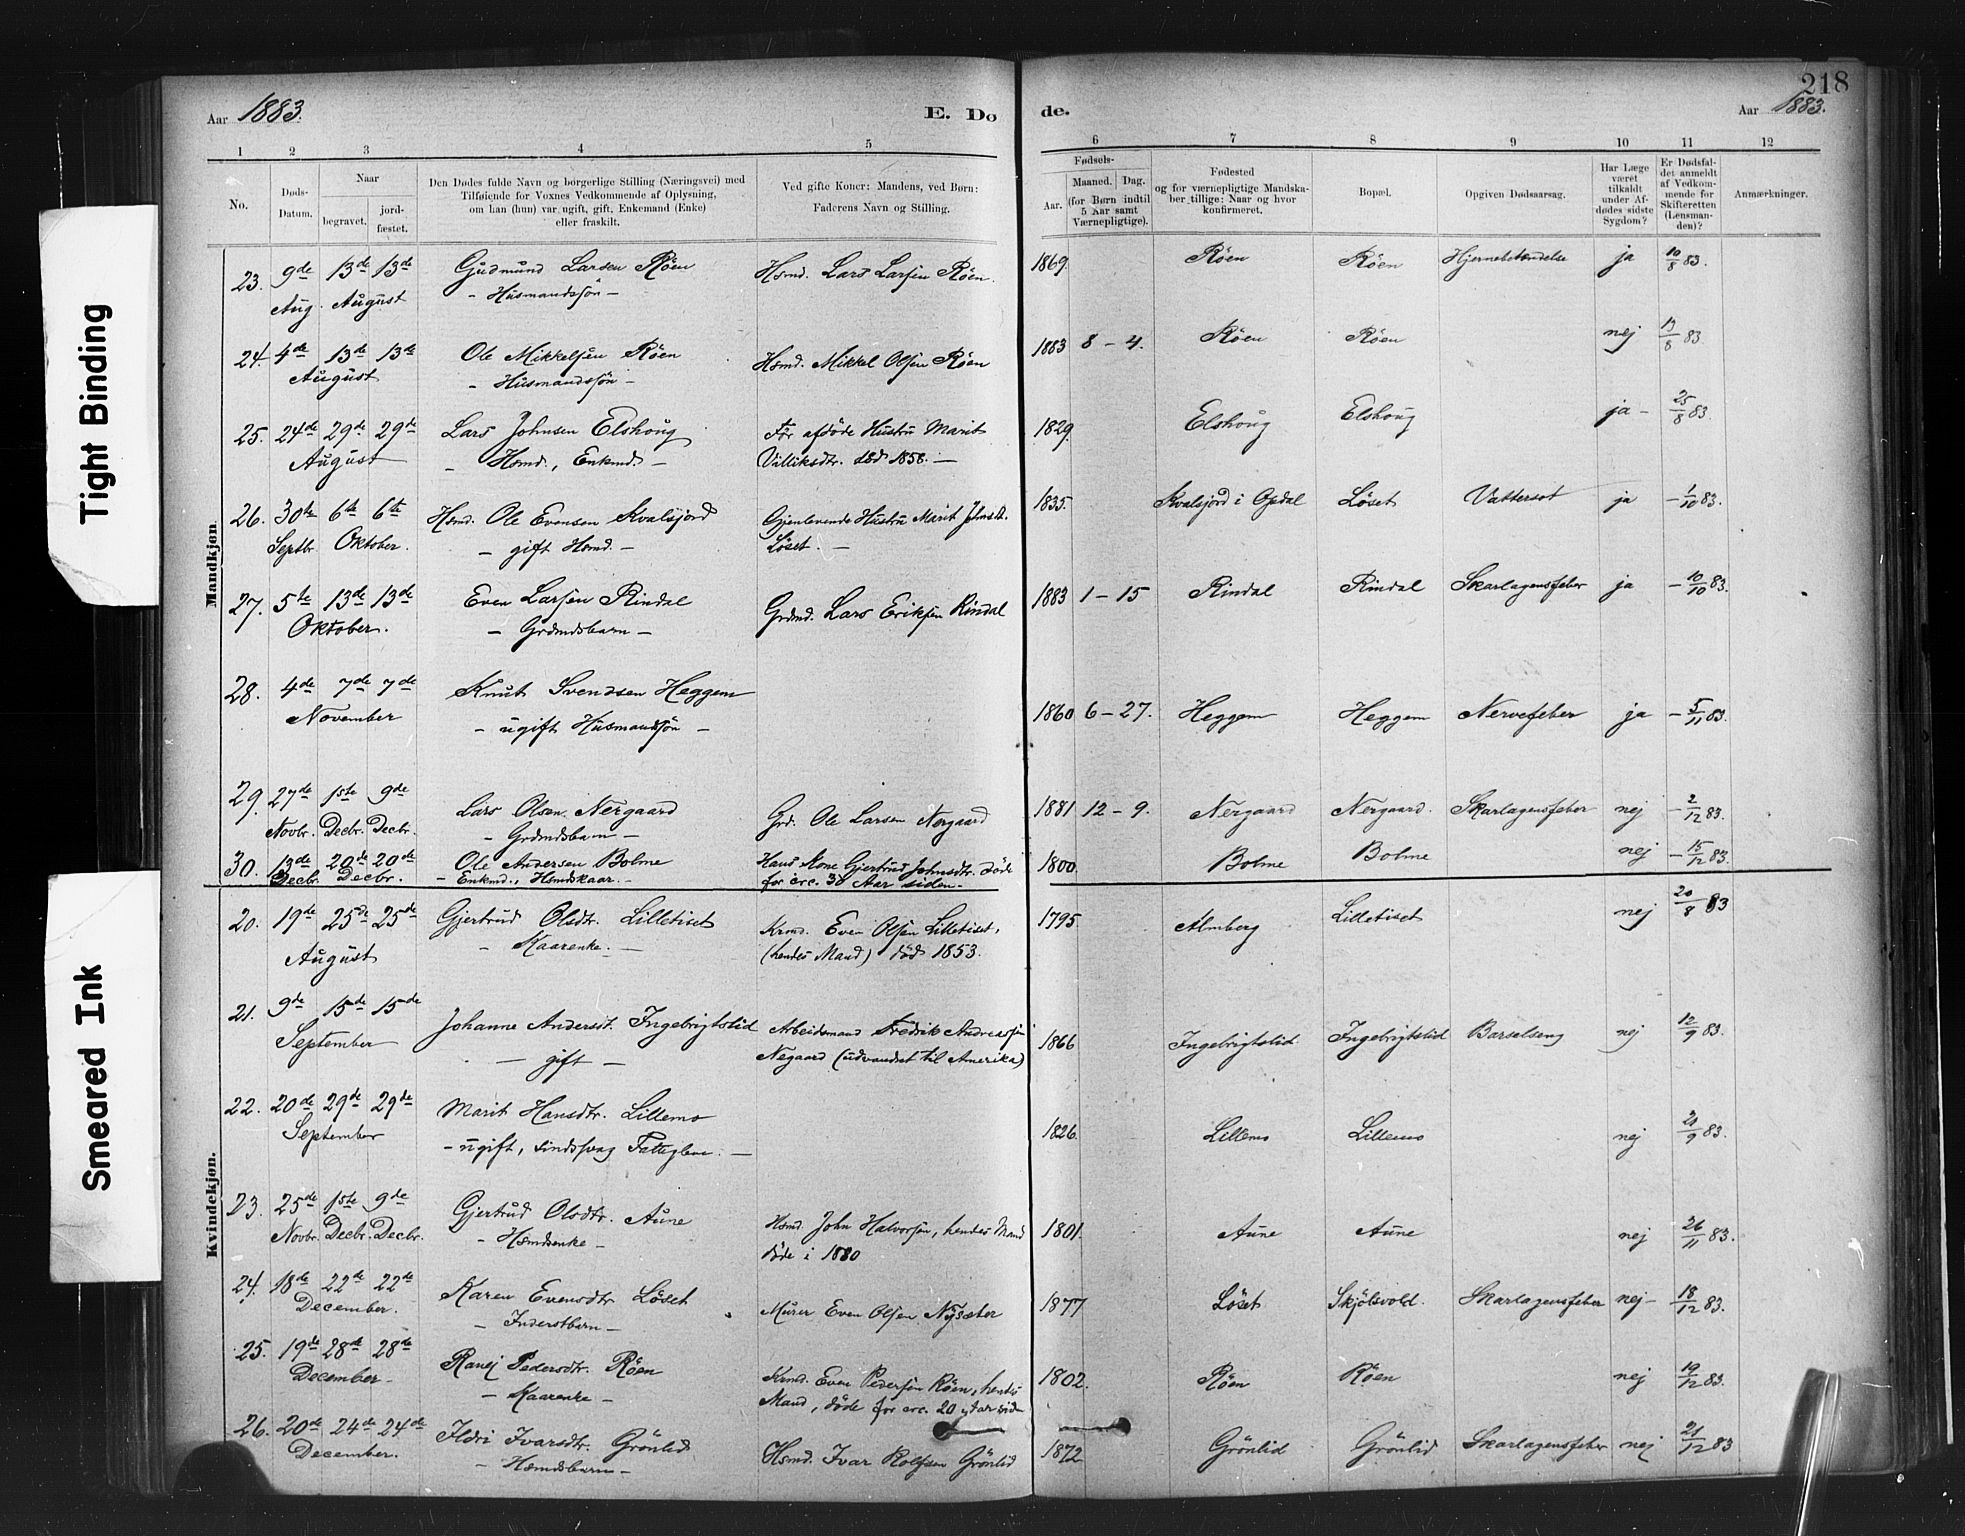 218
Aar 1883.
E. Døde.
Aar 1883.
Tight Binding
Smeared Ink
1 2 3 4 5 6 7 8 9 10 11 12
No.
Døds-Datum.
Naar
begravet.
jord-fæstet.
Den Dødes fulde Navn og borgerlige Stilling (Næringsvei) med
Tilføiende for Voxnes Vedkommende af Oplysning,
om han (hun) var ugift, gift, Enkemand (Enke)
eller fraskilt.
Ved gifte Koner: Mandens, ved Børn:
Faderens Navn og Stilling.
Fødsels-
Aar.
Maaned. Dag.
(for Børn indtil
5 Aar samt
Værnepligtige).
Fødested
og for værnepligtige Mandska-
ber tillige: Naar og hvor
konfirmeret.
Bopæl.
Opgiven Dødsaarsag.
Har Læge
været
tilkaldt
under Af-
dødes sidste
Sygdom?
Er Dødsfal-
det anmeldt
af Vedkom-
mende for
Skifteretten
(Lensman-
den)?
Anmærkninger.
Mandkjøn.
23. 9de 13de 13de Gudmund Larsen Röen Hsmd. Lars Larsen Röen. 1869. Röen Röen Hjernebetændelse ja 10/8 83.
Aug. August - Husmandssön -
24. 4de 13de 13de Ole Mikkelsen Röen Hsmd. Mikkel Olsen Röen 1883 8 - 4. Röen Röen nej 13/8 83
August - Husmandssön -
25. 24de 29de 29de Lars Johnsen Elshoug Før afdöde Hustru Marit 1829. Elshoug Elshoug ja - 25/8 83.
August - Hsmd., Enkmd. - Villiksdtr. död 1858. -
26. 30te 6te 6te Hsmd. Ole Evensen Kvalsjord Gjenlevende Hustru Marit Johnsdt. 1835. Kvalsjord i Opdal Löset Vattersot ja - 1/10 83.
Septbr. Oktober. - gift Hsmd. - Löset. -
27. 5te 13de 13de Even Larsen Rindal Grdmd. Lars Eriksen Rindal 1883 1 - 15 Rindal Rindal Skarlagensfeber ja - 10/10 83.
Oktober. - Grdmdsbarn -
28. 4de 7de 7de Knut Svendsen Heggem 1860 6 - 27. Heggem Heggem Nervefeber ja - 5/11 83.
November - ugift Husmandssön -
29. 27de 1ste 9de Lars Olsen Nergaard Grd. Ole Larsen Nergaard 1881 12 - 9. Nergaard Nergaard. Skarlagensfeber nej - 2/12 83.
Novbr. Decbr. Decbr. - Grdmdsbarn -
30. 13de 20de 20de Ole Andersen Bolme Hans Kone Gjertrud Johnsdtr. döde 1800. Bolme Bolme nej - 15/12 83.
Decbr. Decbr. - Enkmd., Hsmdskaar. - for crc. 30 Aar siden.
Kvindekjøn.
20. 19de 25de 25de Gjertrud Olsdtr. Lilletiset Krmd. Even Olsen Lilletiset, 1795. Almberg Lilletiset nej 20/8 83
August - Kaarenke. - (hendes Mand) död 1853.
21. 9de 15de 15de Johanne Andersdt. Ingebrigtslid Arbeidsmand Fredrik Andreassen 1866 Ingebrigtslid Ingebrigtslid Barselseng nej 12/9 83.
September - gift - Negaard (udvandret til Amerika)
22. 20de 29de 29de Marit Hansdtr. Lillemo 1826. Lillemo Lillemo nej 21/9 83.
September - ugift, sindssvag -
23. 25de 1ste 9de Gjertrud Olsdtr. Aune Hsmd. John Halvorsen, hendes Mand 1801. Aune Aune nej 26/11 83.
Novbr. Decbr. Decbr. - Hsmdsenke - döde i 1880
24. 18de 22de 22de Karen Evensdtr Löset Murer Even Olsen Nysæter 1877 Löset Skjölsvold. Skarlagensfeber nej - 18/12 83.
December. - Inderstbarn -
25. 19de 28de 28de Ranej Pedersdtr. Röen Krmd. Even Pedersen Röen, hendes 1802. Röen Röen nej 19/12 83.
December - Kaarenke - Mand, döde for crc. 20 Aar siden
26. 20de 24de 24de Ildri Ivarsdtr. Grönlid Hsmd. Ivar Rolfsen Grönlid 1872 Grönlid Grönlid Skarlagensfeber nej 21/12 83
December. - Hsmdsbarn -